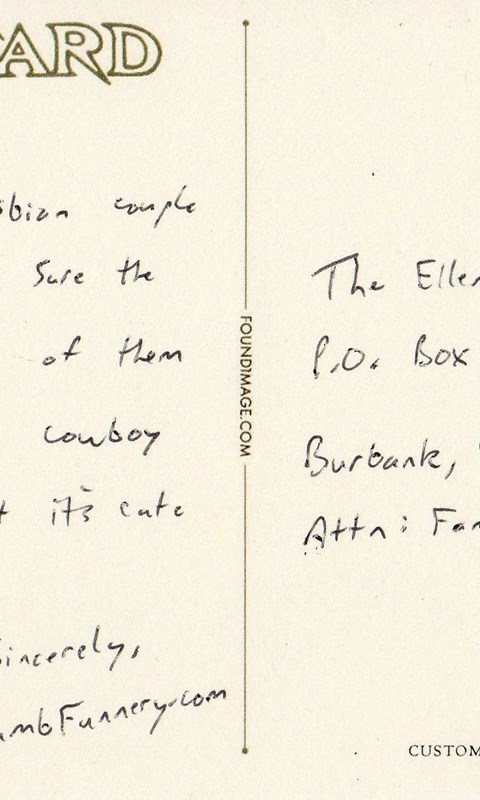 ARD
bian couple
Sure the
of them
cowboy
t it's cute
Sincerely,
umbFunnery.com
FOUNDIMAGE.COM
The Ellen
P.O. Box
Burbank,
Attn: Fan
CUSTOM